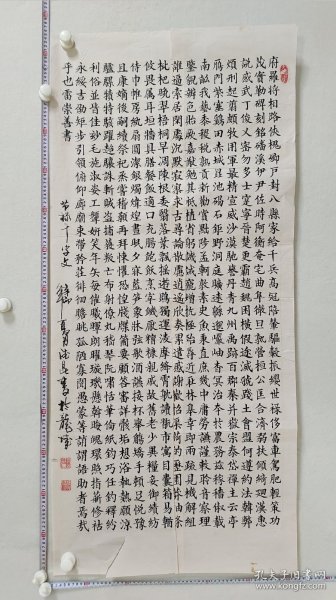 府羅將相路俠槐卿戶封八縣家給千兵高冠陪輦驅轂振纓世祿侈富車駕肥輕策功
茂實勒碑刻銘磻溪伊尹佐時阿衡奄宅曲阜微旦孰營桓公匡合濟弱扶傾綺迴漢惠
說感武丁俊乂密勿多士寔寧晉楚更霸趙魏困橫假途滅虢踐土會盟何遵約法韓弊
煩刑起翦頗牧用軍最精宣威沙漠馳譽丹青九州禹跡百郡秦并嶽宗泰岱禪主云亭
雁門紫塞雞田赤城昆池碣石鉅野洞庭曠遠緜邈巖岫杳冥治本於農務茲稼穡俶載
南畝我藝黍稷稅熟貢新勸賞黜陟孟軻敦素史魚秉直庶幾中庸勞謙謹敕聆音察理
鑒貌辨色貽厥嘉猷勉其祗植省躬譏誡寵增抗極殆辱近恥林皋幸即兩疏見機解組
誰逼索居閒處沉默寂寥求古尋論散慮逍遙欣奏累遣慼謝歡招渠荷的歷園莽抽條
枇杷晚翠梧桐早凋陳根委翳落葉飄颻遊鵾獨運凌摩絳霄耽讀翫市寓目囊箱易輶
攸畏屬耳垣墻具膳餐飯適口充腸飽飫烹宰飢厭糟糠親戚故舊老少異糧妾御績紡
侍巾帷房紈扇圓潔銀燭煒煌晝眠夕寐藍筍象床弦歌酒讌接杯舉觴矯手頓足悅豫
且康嫡後嗣續祭祀烝嘗稽顙再拜悚懼恐惶牋牒簡要顧答審詳骸垢想浴執熱願涼
驢騾犢特駭躍超驤誅斬賊盜捕獲叛亡布射僚丸嵇琴阮嘯恬筆倫紙鈞巧任釣釋紛
利俗並皆佳妙毛施淑姿工顰妍笑年矢每催曦暉朗曜璇璣懸斡晦魄環照指薪修祜
永綏吉劭矩步引領俯仰廊廟束帶矜莊徘徊瞻眺孤陋寡聞愚蒙等誚謂語助者焉哉
乎也雷崇善書
千字文 夏月 書於
孔夫子旧书网